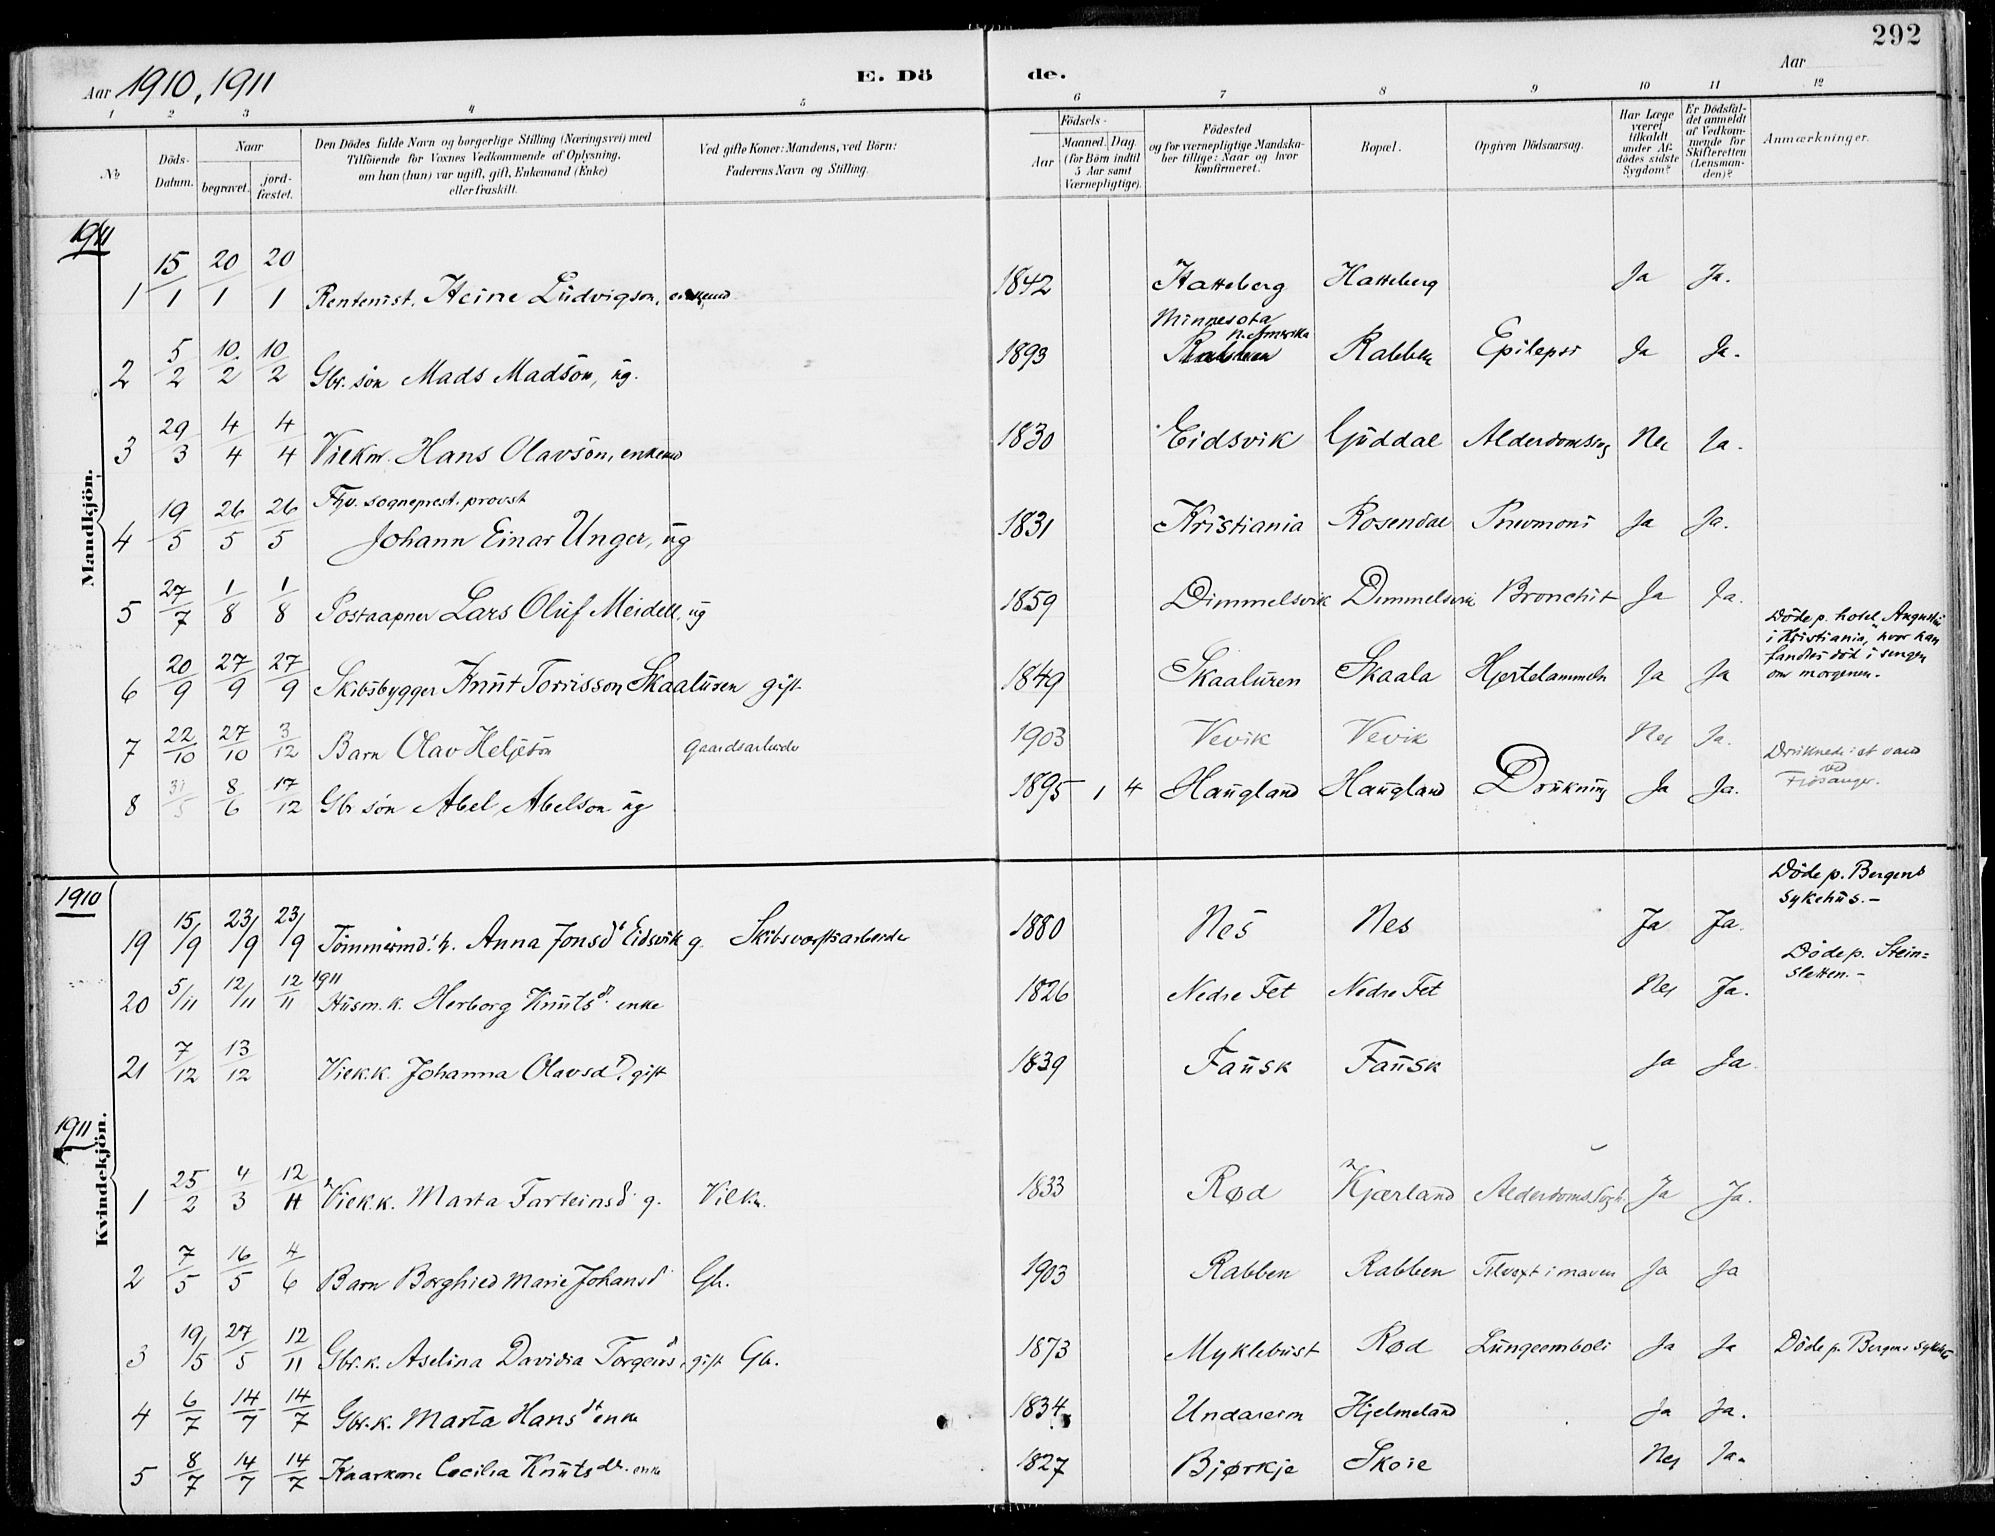 292
Aar 1910, 1911 E. Dö de. Aar
1 2 3 4 5 6 7 8 9 10 11 12
№
Döds-Datum.
Naar
begravet.
jord-fæstet.
Den Dödes fulde Navn og borgerlige Stilling (Næringsvei) med
Tilföiende for Voxnes Vedkommende af Oplysning,
om han (hun) var ugift, gift, Enkemand (Enke)
eller fraskilt.
Ved gifte Koner: Mandens, ved Börn:
Faderens Navn og Stilling.
Födsels-
Aar
Maaned. Dag.
(for Börn indtil
5 Aar samt
Værnepligtige).
Födested
og for værnepligtige Mandska-
ber tillige: Naar og hvor
konfirmeret.
Bopæl.
Opgiven Dödsaarsag.
Har Læge
været
tilkaldt
under Af-
dödes sidste
Sygdom?
Er Dödsfal-
det anmeldt
af Vedkom-
mende for
Skifteretten
(Lensman-
den)?
Anmærkninger.
Mandkjön.
1911
1 15/1 20/1 20/1 Rentenist. Heine Ludvigson, 1842 Hatteberg Hatteberg Ja Ja.
Minnesota
N. Amerika
2 5/2 10/2 10/2 Gbr. søn Mads Madsön, ug. 1893 Rabben Rabben Epilepsi Ja Ja.
3 29/3 4/4 4/4 Vilkm. Hans Olavsön, enkemd 1830 Eidsvik Guddal Alderdomssyg Nei Ja.
Fhv. sogneprest. provst
4 19/5 26/5 26/5 Johann Einar Unger, ug 1831 Kristiania Rosendal Pnevmoni Ja Ja.
5 27/7 1/8 1/8 Postaapner Lars Oluf Meidell, ug 1859 Dimmelsvik Dimmelsvik Bronchit Ja Ja.
6 20/9 27/9 27/9 Skibsbygger Knut Torrisson Skaaluren gift 1849 Skaaluren Skaala Hjertelammelse Ja Ja
Döde p. hotel Augustin
i Kristiania, hvor han
fandtes död i sengen
om morgenen.
7 22/10 27/10 3/12 Barn Olav Heljesön Gaardsarbeider 1903 Vevik Vevik Nei Ja.
8 31/5 8/6 17/12 Gbr søn Abel Abelson ug 1895 1 4 Haugland Haugland Drukning Ja Ja.
Druknede i et vand
ved
Fjösanger.
Kvindekjön.
1910
19 15/9 23/9 23/9 Tömmermd. h. Anna Jonsdt Eidsvik g. Skibsværftsarbeider 1880 Nes Nes Ja Ja.
Döde p. Bergens
sykehus.-
20 5/11 12/11 12/11 1911 Husm. k. Herborg Knutsd. enke 1826 Nedre Fet Nedre Fet Nei Ja.
Döde p. Stein=
sletten.-
21 7/12 13/12 Vilk.k. Johanna Olavsd, gift 1839 Fausk Fausk Ja Ja.
1911
1 25/2 4/3 12/11 Vilk.k. Marta Farteinsd g. Vilkm. 1833 Rød Kjærland Alderdoms Ja Ja.
2 7/5 16/5 4/6 Barn Borghild Marie Johansd Gb. 1903 Rabben Rabben Tilvext i maven Ja Ja
3 19/5 27/5 12/11 Gbr.k. Aselina Davidia Torgeirsd, gift Gb. 1873 Myklebust Rød Lungeemboli Ja Ja Döde p. Bergens sykehus
4 6/7 14/7 14/7 Gbr.k. Marta Hansdt enke 1834 Undareim Hjelmeland Ja Ja.
5 8/7 14/7 14/7 Kaarkone Cecilia Knutsdr. enke 1827 Bjørkje Skoie Nei Ja.